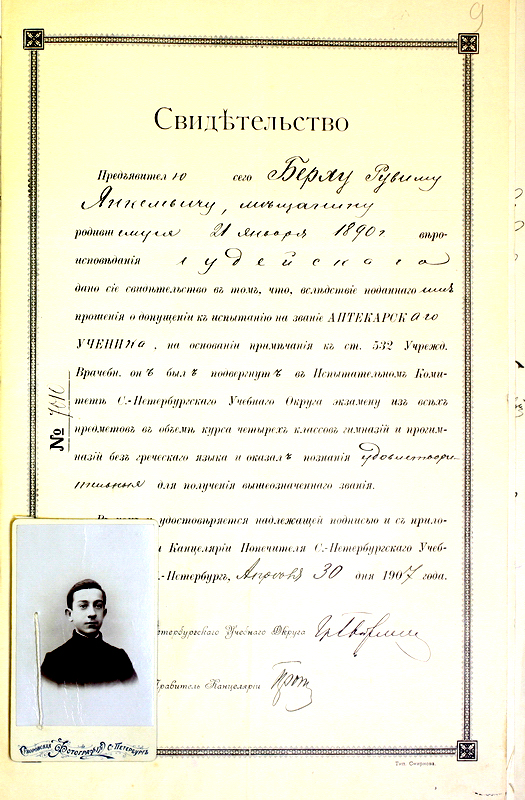 9
Свидѣтельство
Предъявителю сего Берху Рувиму
Янкелевичу, мѣщанину
родившемуся 21 января 1890 г вѣро-
исповѣданія іудейскаго
дано сіе свидѣтельство въ томъ, что, вслѣдствіе поданнаго имъ
прошенія о допущеніи къ испытанію на званіе АПТЕКАРСКАГО
УЧЕНИКА, на основаніи примѣчанія къ ст. 532 Учрежд.
Врачебн. онъ былъ подвергнутъ въ Испытательномъ Коми-
тетѣ С.-Петербургскаго Учебнаго Округа экзамену изъ всѣхъ
предметовъ въ объемѣ курса четырехъ классовъ гимназій и прогим-
назій безъ греческаго языка и оказалъ познанія удовлетвори-
тельныя для полученія вышеозначеннаго званія.
№
удостовѣряется надлежащей подписью и съ прило-
Канцеляріи Попечителя С.-Петербургскаго Учеб-
.-Петербургъ, Апрѣля 30 дня 1907 года.
етербургскаго Учебнаго Округа
Правитель Канцеляріи
Фотографія С. Петербургъ
Тип. Смирнова.